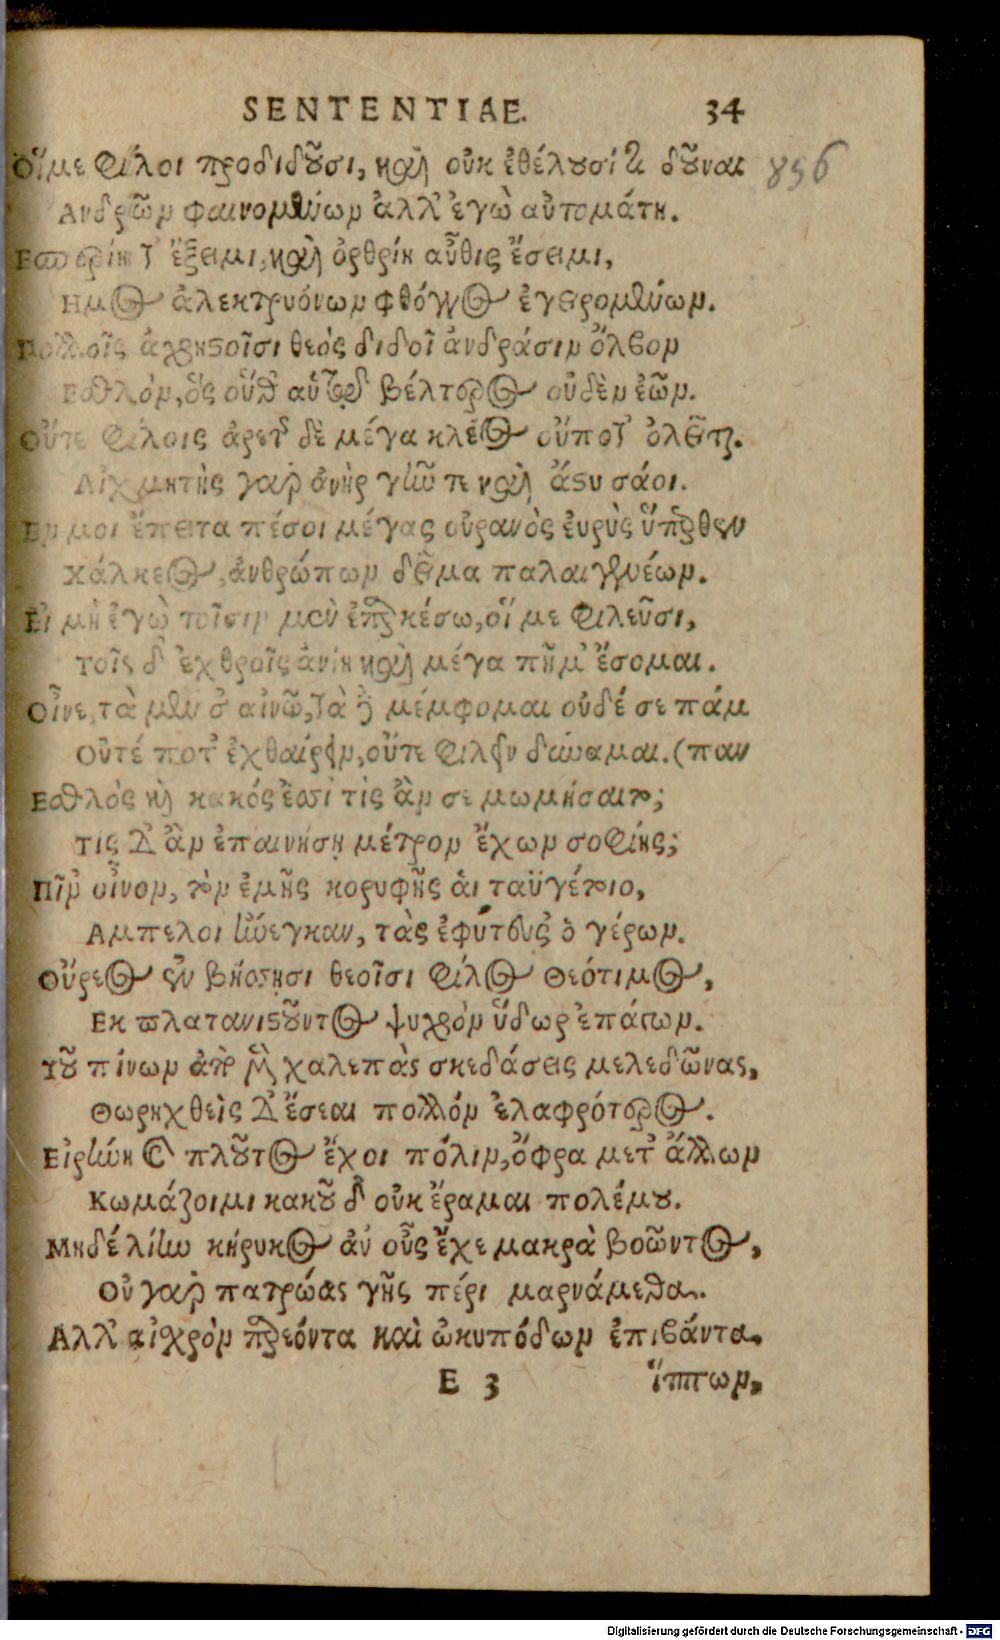 SENTENTIAE. 34
Οἵ με φίλοι προδιδοῦσι, καὶ οὐκ ἐθέλουσί τι δοῦναι 856
Ανδρῶν φαινομένων ἀλλ' ἐγὼ αὐτομάτη.
Εσπερίη τ' ἔξειμι, καὶ ὀρθρίη αὖθις ἔσειμι,
Ημος ἀλεκτρυόνων φθόγγος ἐγειρομένων.
Πολλοῖς ἀχρήστοισι θεὸς διδοῖ ἀνδράσιν ὄλβον
Εσθλόν, ὃς οὔτ' αὐτῷ βέλτερος οὐδὲν ἐὼν.
Οὔτε φίλοις ἀρετ' δὲ μέγα κλέος οὔποτ' ὀλεῖται.
Αἰχμητὴς γὰρ ἀνὴρ γῆν τε καὶ ἄστυ σάοι.
Εν μοι ἔπειτα πέσοι μέγας οὐρανὸς εὐρὺς ὕπερθεν
Χάλκεος, ἀνθρώπων δεῖμα παλαιγενέων.
Εἰ μὴ ἐγὼ τοῖσιν μὲν ἐπαρκέσω, οἵ με φιλεῦσι,
Τοῖς δ' ἐχθροῖς ἀνίη καὶ μέγα πῆμ' ἔσομαι.
Οἶνε, τὰ μέν σ' αἰνῶ, τὰ δὲ μέμφομαι οὐδέ σε πάμ
Οὔτέ ποτ' ἐχθαίρειν, οὔτε φιλεῖν δύναμαι. (παν
Εσθλὸς καὶ κακός ἐσσι τίς ἂν σε μωμήσαιτο;
Τις δ' ἂν ἐπαινήσῃ μέτρον ἔχων σοφίης;
Πῖν' οἶνον, τὸν ἐμῆς κορυφῆς ἁι ταϋγέτοιο,
Αμπελοι ἤνεγκαν, τὰς ἐφύτευσ' ὁ γέρων.
Οὔρεος ἐν βήσσῃσι θεοῖσι φίλος Θεότιμος,
Εκ πλατανιστοῦντος ψυχρὸν ὕδωρ ἐπάγων.
Τοῦ πίνων ἀπὸ μὲν χαλεπὰς σκεδάσεις μελεδῶνας,
Θωρηχθεὶς δ' ἔσεαι πολλόν ἐλαφρότερος.
Εἰρήνη καὶ πλοῦτος ἔχοι πόλιν, ὄφρα μετ' ἄλλων
Κωμάζοιμι κακοῦ δ' οὐκ ἔραμαι πολέμου.
Μηδέ λίην κήρυκος ἀν' οὖς ἔχε μακρὰ βοῶντος,
Οὐ γὰρ πατρώας γῆς πέρι μαρνάμεθα.
Αλλ' αἰχρὸν παρεόντα καὶ ὠκυπόδων ἐπιβάντα
E 3 ἵππων,
Digitalisierung gefördert durch die Deutsche Forschungsgemeinschaft - DFG